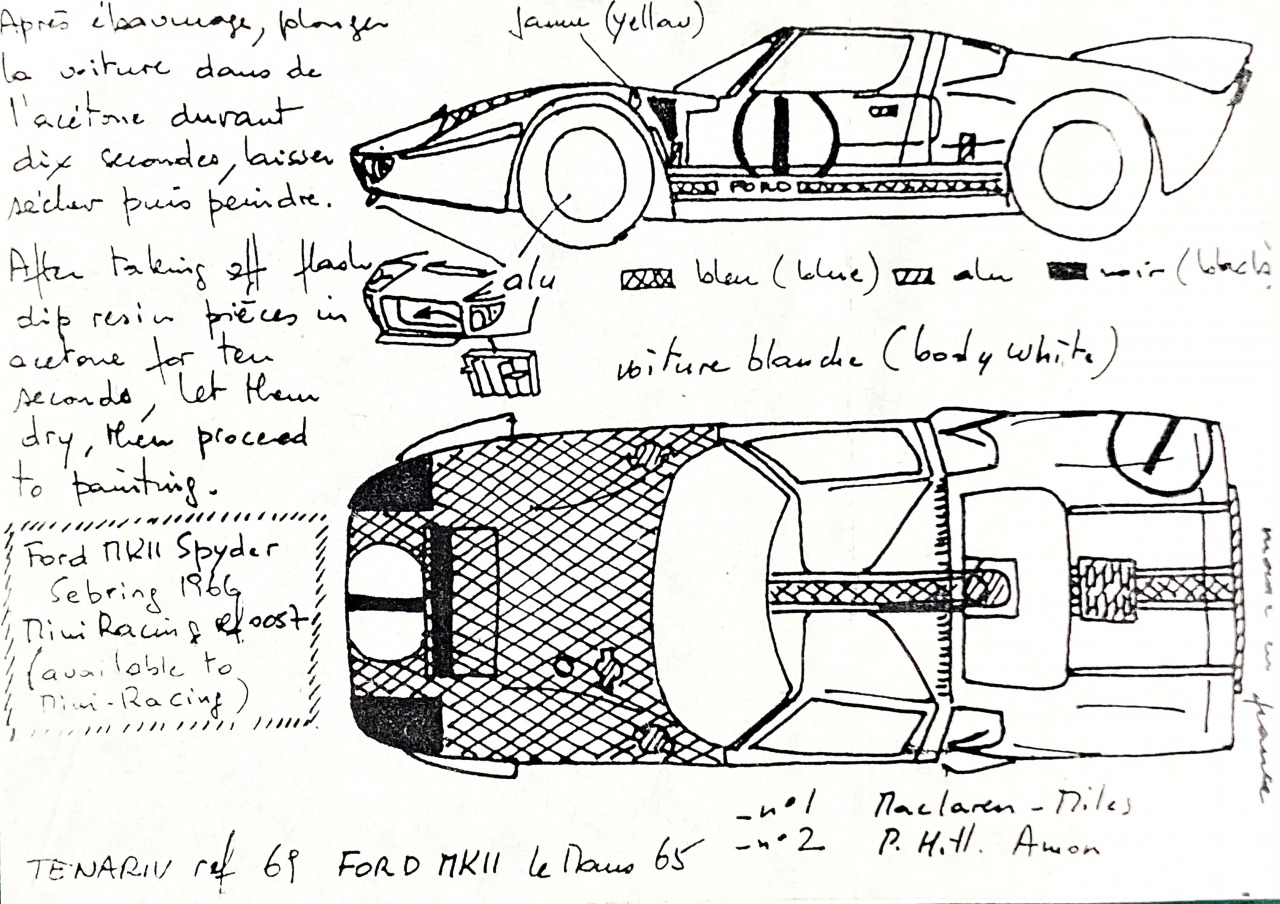 Après ébavurage, plonger
la voiture dans de
l'acétone durant
dix secondes, laisser
sécher puis peindre.
After taking off flash
dip resin pièces in
acetone for ten
seconds, let them
dry, then proceed
to painting.
Ford MKII Spyder
Sebring 1966
Mini Racing Rf 0057
(available to
Mini-Racing)
jaune (yellow)
1
FORD
alu
bleu (blue)
alu
noir (black)
voiture blanche (body white)
1
1
made in france
- n° 1 Maclaren - Miles
- n° 2 P. Hill. Amon
TENARIV ref 69 FORD MKII le Mans 65